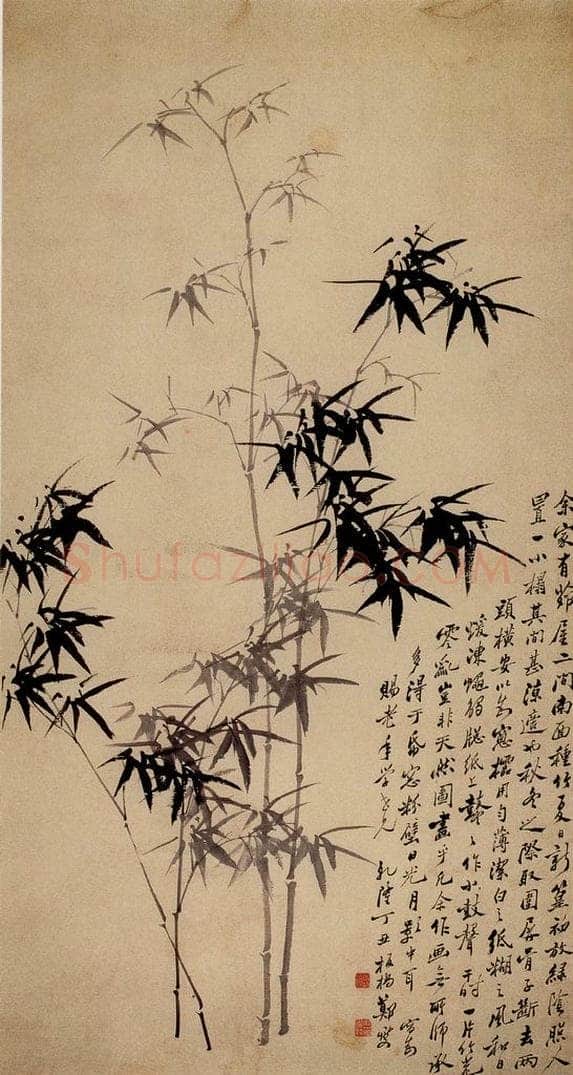 余家有茅屋二間南面種竹夏日新篁初放綠陰照人
置一小榻其間甚涼適也秋冬之際取圍屏骨子斷去兩
頭橫安以為窓櫺用勻薄潔白之紙糊之風和日
煖凍蠅觸牕紙上鼕々作小鼓聲于時一片竹
零亂豈非天然圖畫乎凡余作画無所師承
多得于紙窓粉壁日光月影中耳 寫為
賜老年學兄 乾隆丁丑板橋鄭燮
Shufaziliao.COM